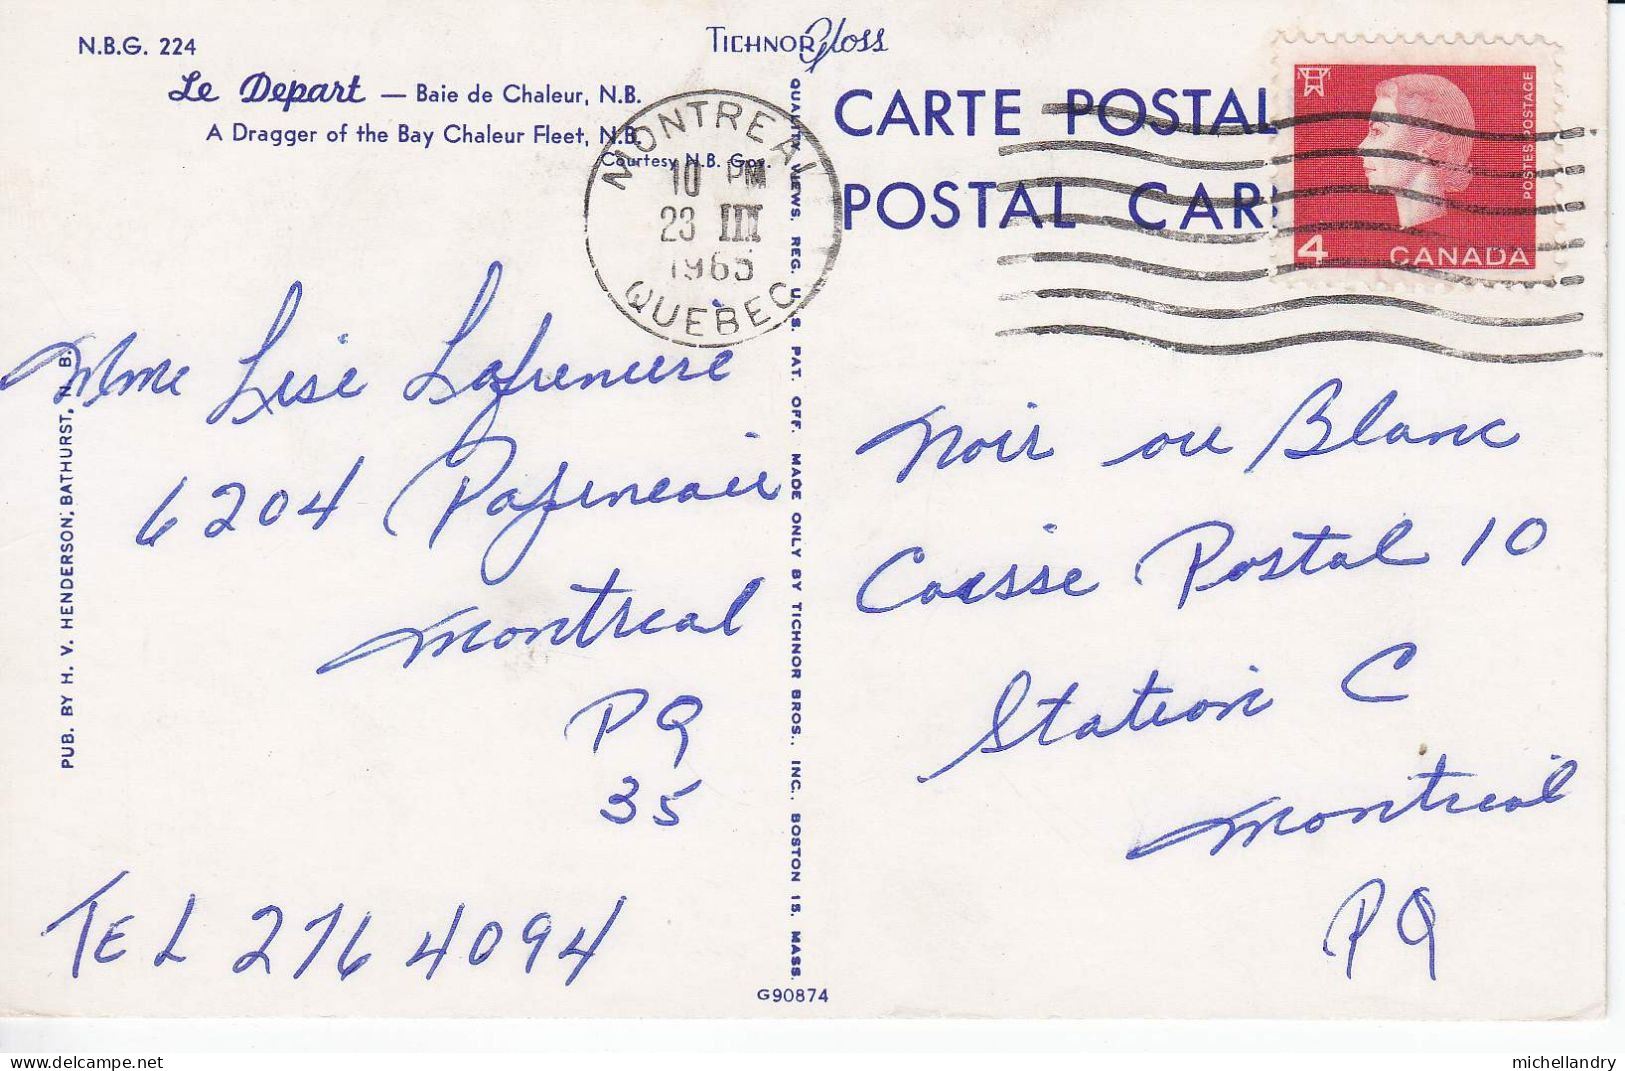 N.B.G. 224
TICHNOR Gloss
Le Depart — Baie de Chaleur, N.B.
A Dragger of the Bay Chaleur Fleet, N.B.
Courtesy N.B. Gov.
CARTE POSTAL
POSTAL CAR
MONTREAL
10 PM
23 III
QUÉBEC
POSTES POSTAGE
4 CANADA
PUB. BY H. V. HENDERSON, BATHURST, N. B.
QUALITY VIEWS. REG. U.S. PAT. OFF. MADE ONLY BY TICHNOR BROS., INC., BOSTON 15. MASS.
Mme Lise Lafreniere
6204 Papineau
Montreal
PQ
35
TEL 276 4094
G90874
Noir ou Blanc
Caisse Postal 10
Station C
Montreal
PQ
michellandry